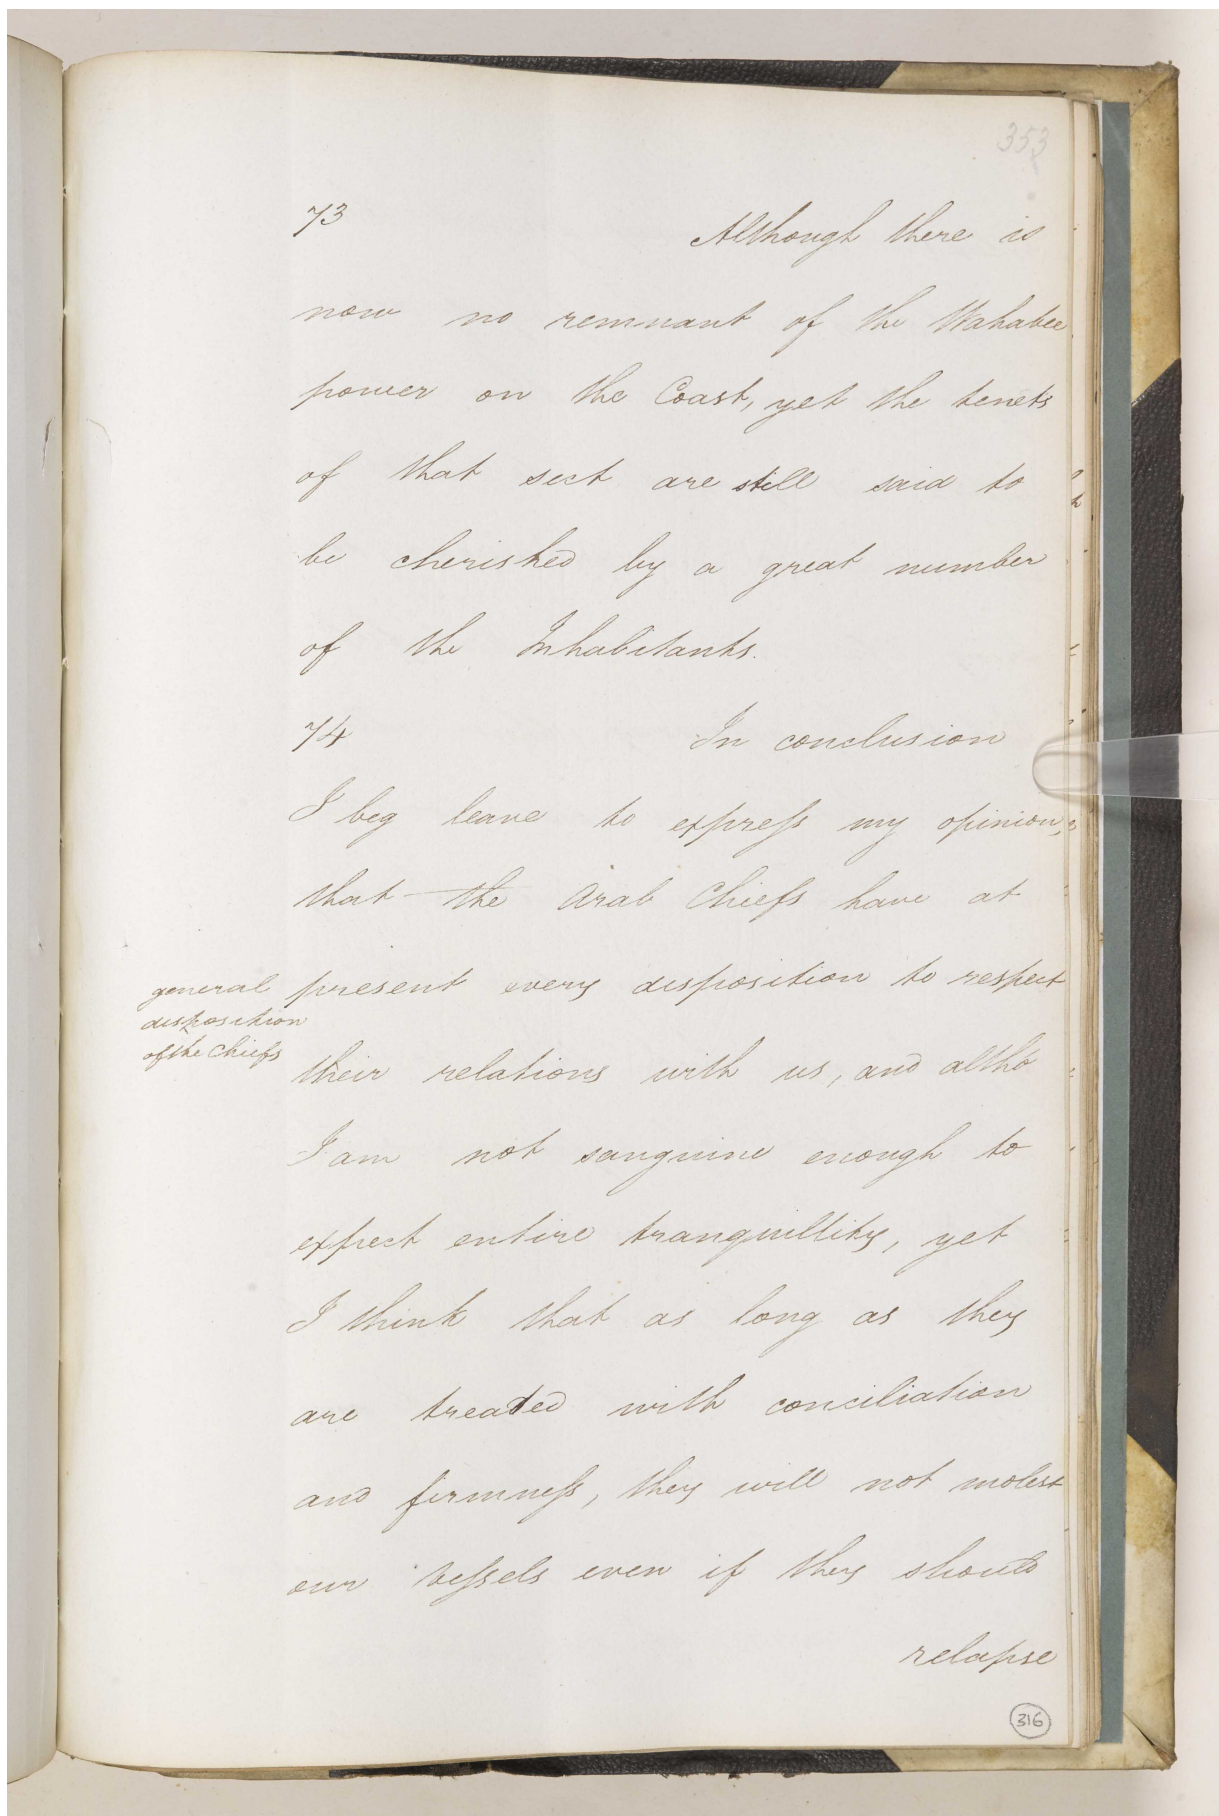 353
73 Although there is
now no remnant of the Wahabee
power on the Coast, yet the tenets
of that sect are still said to
be cherished by a great number
of the Inhabitants.
74 In conclusion
I beg leave to express my opinion,
that the Arab Chiefs have at
general
disposition
of the Chiefs
present every disposition to respect
their relations with us, and altho
I am not sanguine enough to
expect entire tranquillity, yet
I think that as long as they
are treated with conciliation
and firmness, they will not molest
our vessels even if they should
relapse
316